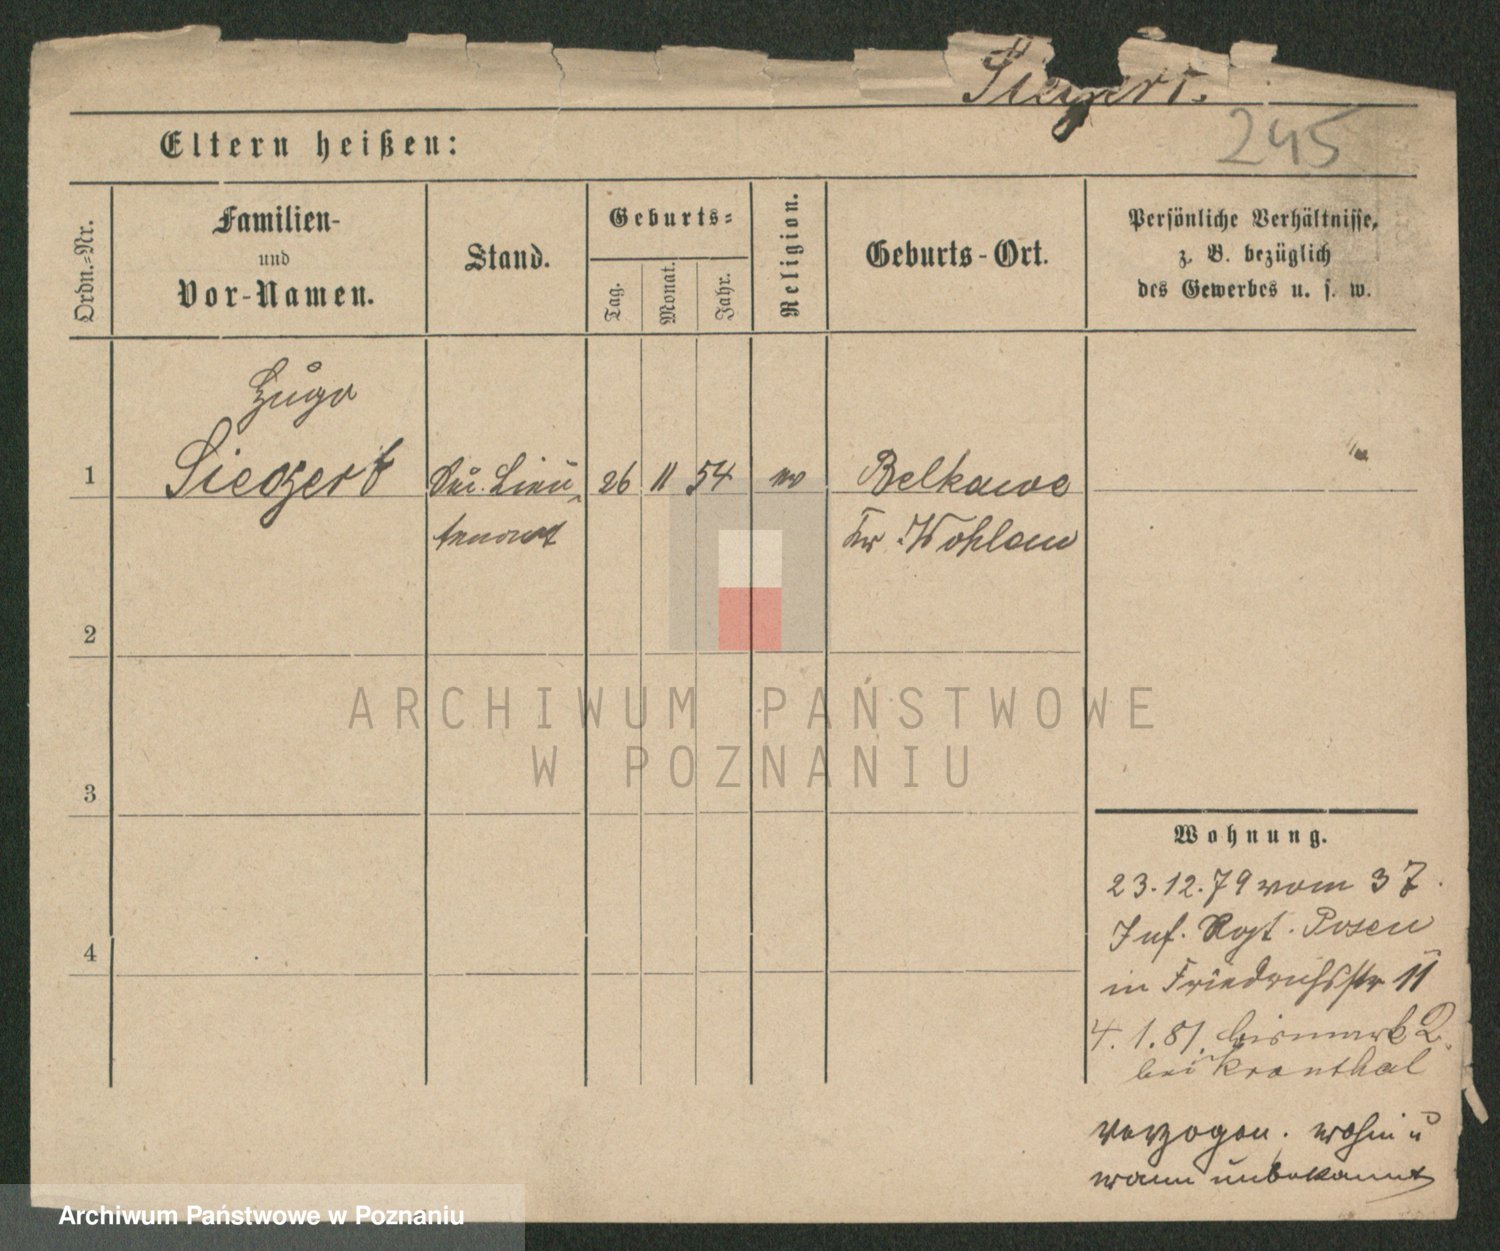 Siegert.
245
Eltern heißen:
Ordn.-Nr.
Familien-
und
Vor-Namen.
Stand.
Geburts-
Tag.
Monat.
Jahr.
Religion.
Geburts-Ort.
Persönliche Verhältnisse,
z. B. bezüglich
des Gewerbes u. s. w.
Hugo
1 Siegert Sec. Lieu- 26 11 54 ev Belkawe
tenant Kr. Wohlau
2
3
4
Wohnung.
23.12.79 vom 37.
Inf. Rgt. Posen
in Friedrichsstr 11
4. 1. 81. bismark
bei Kronthal
verzogen. wohin u
wann unbekannt
ARCHIWUM PAŃSTWOWE
W POZNANIU
Archiwum Państwowe w Poznaniu